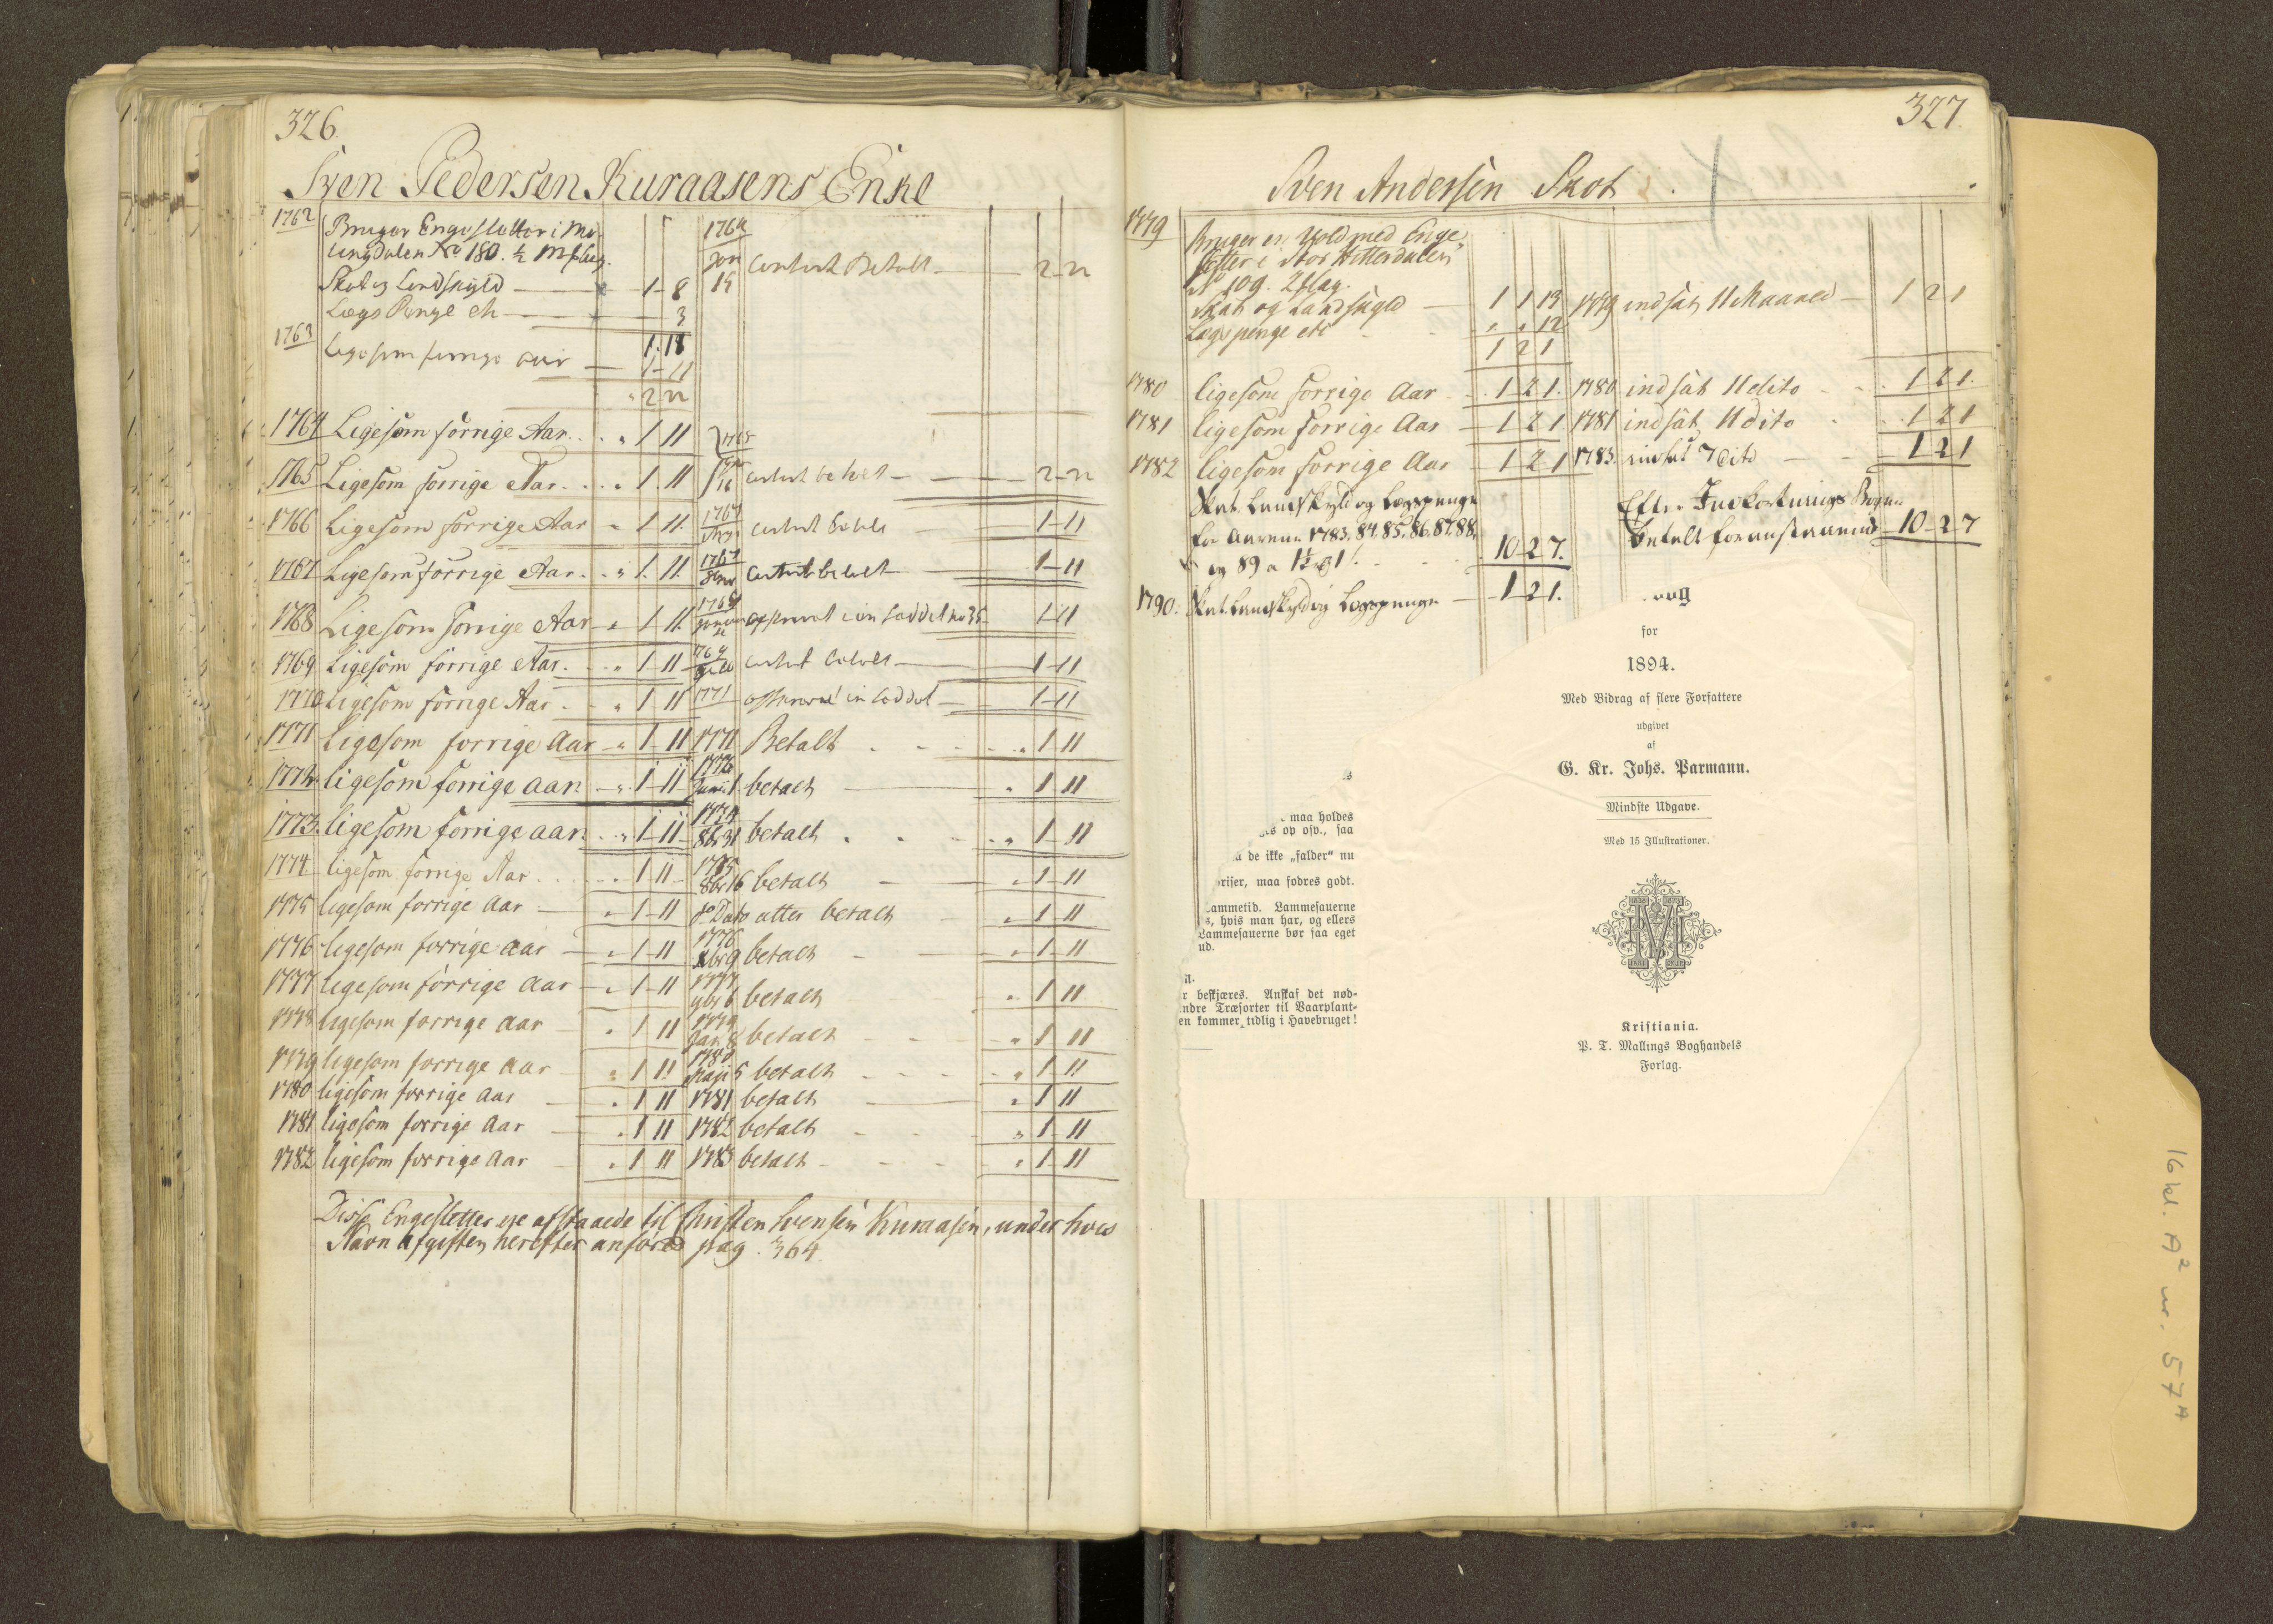 326.
Sven Pedersen Kuraasens Enke
1762 Bruger Engesletter i
No 180. ½
Skat og Landskyld 1-8
Lægs Penge etc 3
1-11
1763 Ligesom forrige aar 1-11
2-22
1764 Contant Betalt 2-22
1764 Ligesom forrige Aar 1 11
1765 Ligesom forrige Aar 1 11 contant betalt 2-22
1766 Ligesom forrige Aar 1 11 1767 contant betalt 1-11
1767 Ligesom forrige Aar 1 11 1767 contant betalt 1-11
1768 Ligesom forrige Aar 1 11 1-11
1769 Ligesom forrige Aar 1-11 contant betalt 1-11
1770 Ligesom forrige Aar 1 11 1771 1-11
1771 Ligesom forrige Aar 1-11 1771 Betalt 1-11
1772 ligesom forrige aar 1-11 betalt 1-11
1773 ligesom forrige aar 1-11 8br 31 betalt 1-11
1774 ligesom forrige Aar 1 11 1775 8br 16 betalt 1-11
1775 ligesom forrige Aar 1-11 do Dato atter betalt 1-11
1776 ligesom forrige aar 1-11 1776 betalt 1-11
1777 ligesom forrige aar 1-11 1777 betalt 1 11
1778 ligesom forrige aar 1 11 1779 Jan 8 betalt 1 11
1779 ligesom forrige aar 1 11 1780 Maji 5 betalt 1 11
1780 ligesom forrige aar 1 11 1781 betalt 1 11
1781 ligesom forrige aar 1 11 1782 betalt 1-11
1782 ligesom forrige aar 1 11 1783 betalt 1-11
Disse Engesletter ere afstaaede til Christen Svensen Kuraasen, under hvis
Navn Afgiften herefter anföres pag. 364
327.
Sven Andersen Skot
1779 Bruger en Vold med Enge-
sletter i Stor Hitterdalen
No 109. 2 slag.
Skat og Landskyld 1 1 13 1779 indsat 11 Maaned 1 2 1
Lægspenge etc 12
1 2 1
1780 ligesom forrige Aar 1-2 1. 1780 indsat 11 dito 1 2 1.
1781 ligesom forrige Aar 1 2 1 1781 indsat 11 dito 1 2 1
1782 ligesom forrige Aar 1 2 1 1783. indsat 7 dito 1 2 1
Skat Landskyld og Lægspenge
for Aarene 1783, 84, 85, 86, 87, 88,
og 89 a 10 2 7.
Efter Indkortnings Bogen
betalt foranstaaende 10-2-7
1790. Skat Landskyld og Lægspenge 1-2 1.
for
1894.
Med Bidrag af flere Forfattere
udgivet
af
G. Kr. Johs. Parmann.
Mindste Udgave.
Med 15 Illustrationer.
Kristiania.
P. T. Mallings Boghandels
Forlag.
maa holdes
op osv., saa
de ikke „falder“ nu
priser, maa fodres godt.
Lammetid. Lammesauerne
hvis man har, og ellers
Lammesauerne bør saa eget
ud.
beskjæres. Anskaf det nød-
ndre Træsorter til Vaarplant-
en kommer tidlig i Havebruget!
16 kl. A² nr. 57 A